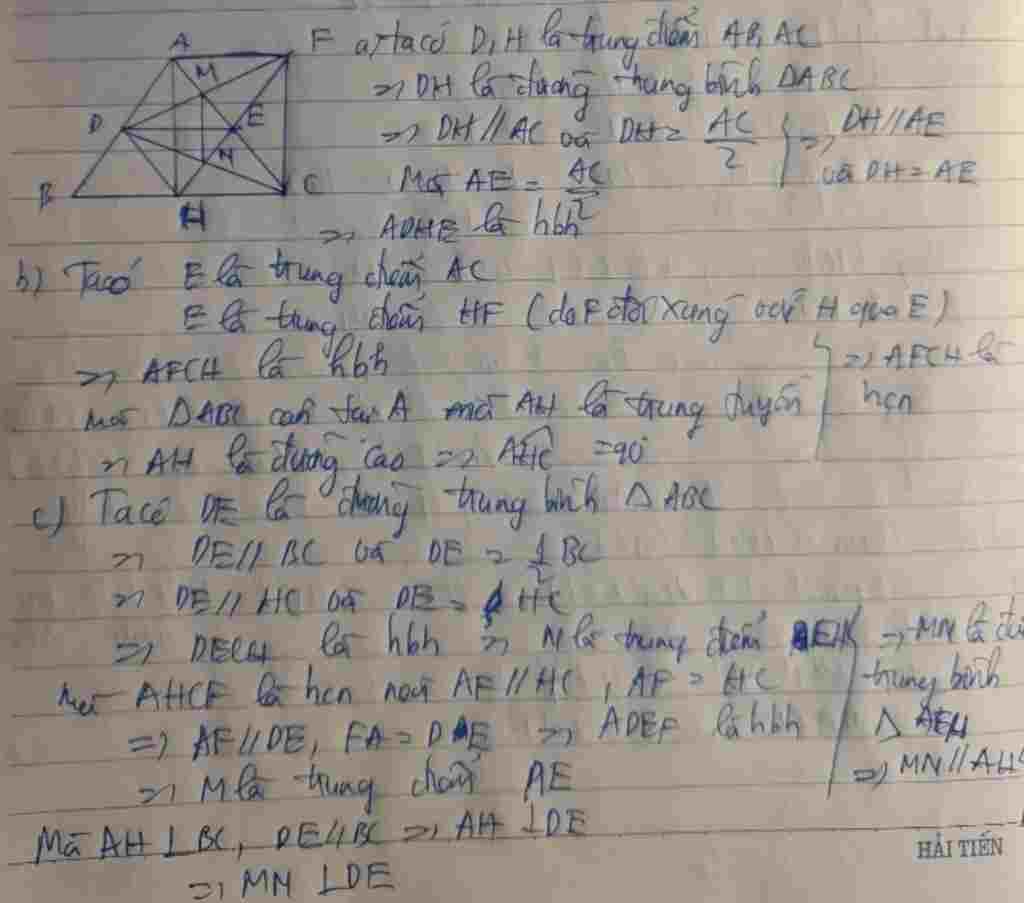 A
F
M
D
E
N
B
H
C
a, ta có D, H là trung điểm AB, AC
=> DH là đường trung bình ΔABC
=> DH // AC và DH = AC/2 } => DH // AE và DH = AE
Mà AE = AC/2
=> ADHE là hbh
b) Ta có E là trung điểm AC
E là trung điểm HF (do F đối xứng với H qua E)
=> AFCH là hbh } => AFCH là hcn
mà ΔABC cân tại A mà AH là trung tuyến
=> AH là đường cao => AHC = 90°
c) Ta có DE là đường trung bình ΔABC
=> DE // BC và DE = 1/2 BC
=> DE // HC và DE = HC
=> DECH là hbh => N là trung điểm EH => MN là
mà AHCF là hcn AF // HC, AF = HC trung bình
=> AF // DE, FA = DE => ADEF là hbh Δ AEH
=> M là trung điểm AE => MN // AH
Mà AH ⊥ BC, DE // BC => AH ⊥ DE
=> MN ⊥ DE
HẢI TIẾN